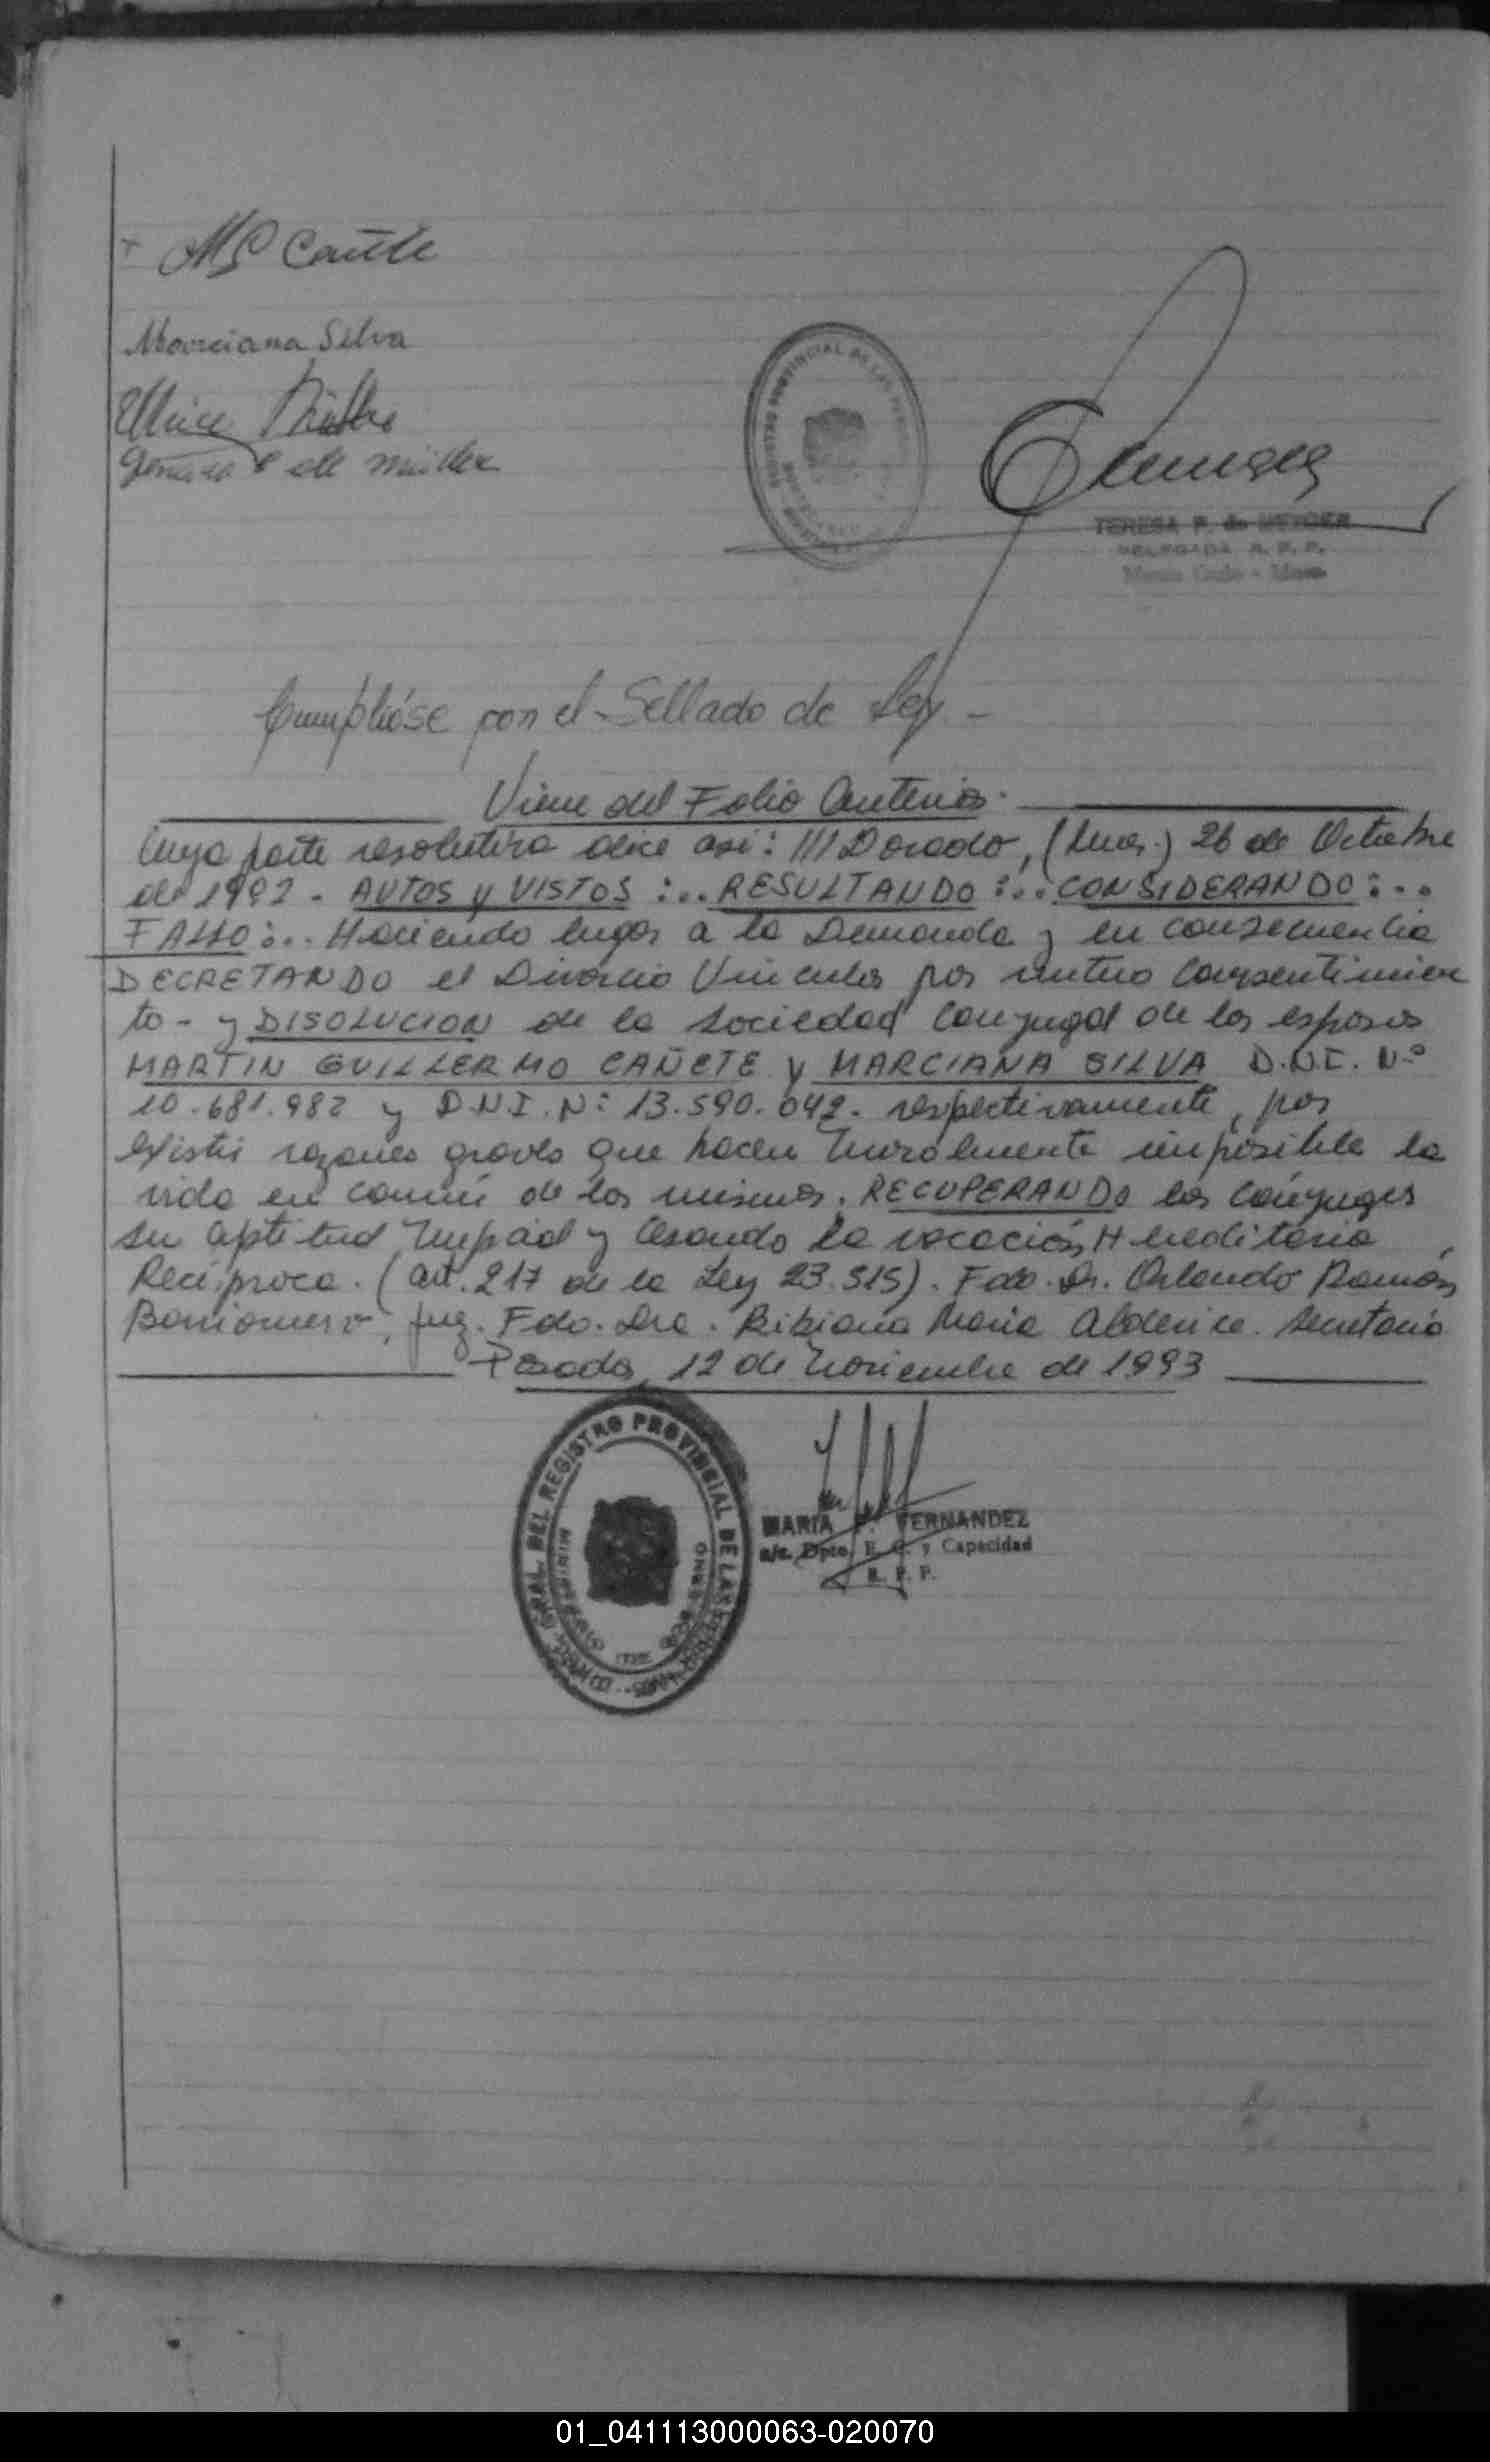 MG Cañete
Marciana Silva
de Müller
TERESA P. de MEYGER
DELEGADA R. P. P.
Monte Carlo - Mnes.
Cumplióse con el Sellado de Ley. -
Viene del Folio Anterior.
Cuya parte resolutiva dice asi: ///Dorado, (Mnes.) 26 de Octubre
de 1992. AUTOS y VISTOS:.. RESULTANDO:... CONSIDERANDO:...
FALLO:.. Haciendo lugar a la Demanda y en consecuencia
DECRETANDO el Divorcio Vincular por mutuo Consentimien
to - y DISOLUCION de la Sociedad Conyugal de los esposos
MARTIN GUILLERMO CAÑETE y MARCIANA SILVA D.N.I. Nº
10.681.982 y D.N.I. Nº 13.590.042. respectivamente, por
existir razones graves que hacen moralmente imposible la
vida en común de los mismos. RECUPERANDO los Cónyuges
su aptitud Nupcial y Cesando la vocación Hereditaria
Recíproca. (art. 217 de la Ley 23.515). Fdo. Dr. Orlando Ramón
Juez. Fdo. Dra. Bibiana Maria Alderice. Secretaria
Posadas, 12 de Noviembre de 1993
GRAL. DEL REGISTRO PROVINCIAL DE LAS PERSONAS
MINISTERIO DE GOBIERNO
MARIA FERNANDEZ
a/c. Dpto. E. C. y Capacidad
R. P. P.
01_041113000063-020070